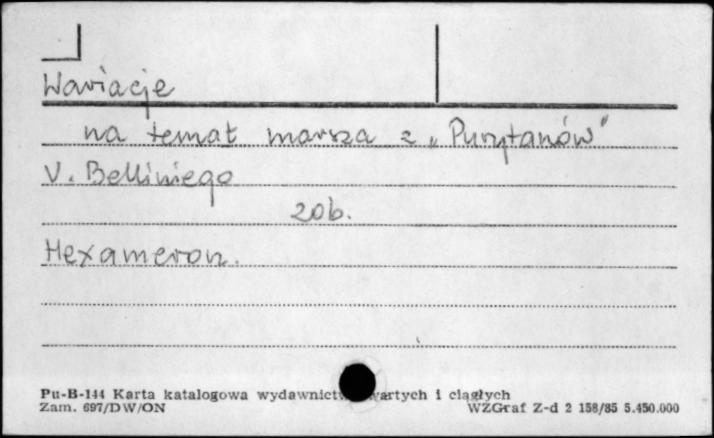 Wariacje
na temat marsza z „Purytanów"
V. Belliniego
zob.
Hexameron.
Pu-B-144 Karta katalogowa wydawnictw zwartych i ciągłych
Zam. 697/DW/ON WZGraf Z-d 2 158/85 5.450.000